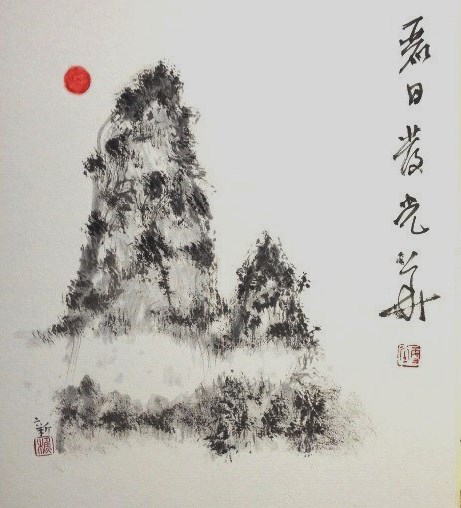 麗日發光華
新